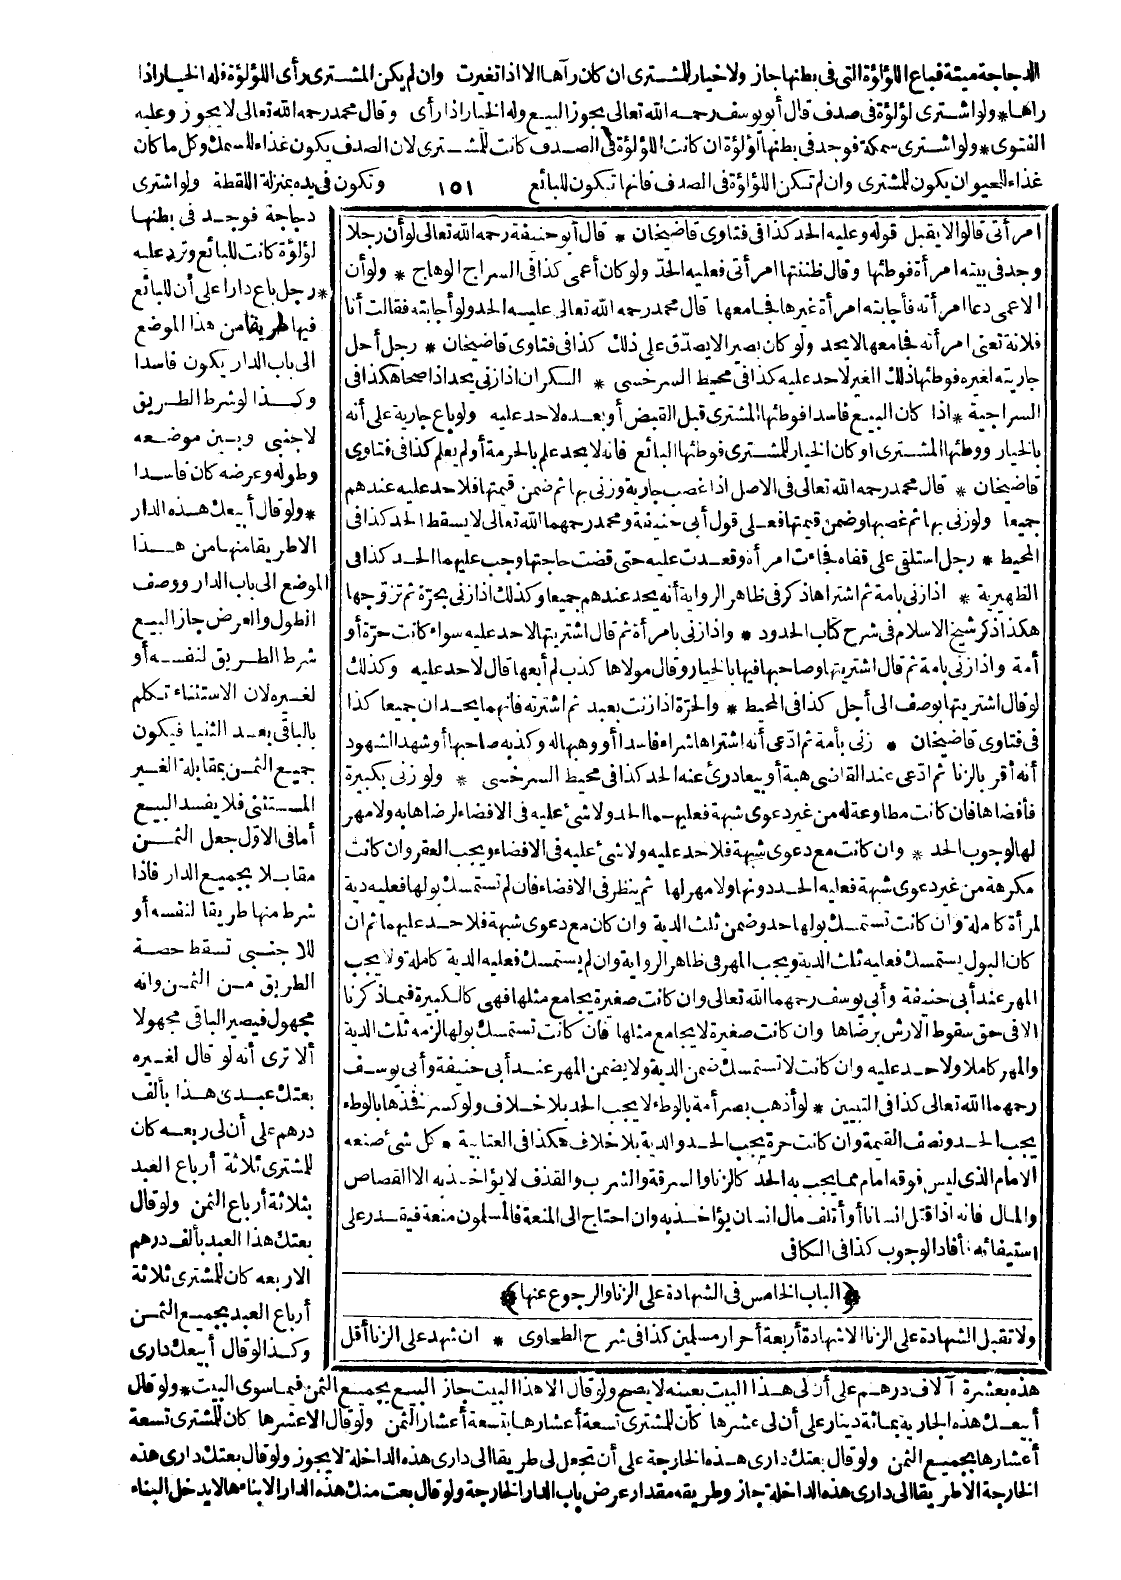 الدجاجة ميتة فباع اللؤلؤة التى فى بطنها جاز ولا خيار للمشترى ان كان رآها الا اذا تغيرت وان لم يكن المشترى رأى اللؤلؤة فله الخيار اذا
رآها * ولو اشترى لؤلؤة فى صدف قال أبو يوسف رحمه الله تعالى يجوز البيع وله الخيار اذا رأى وقال محمد رحمه الله تعالى لا يجوز وعليه
الفتوى * ولو اشترى سمكة فوجد فى بطنها لؤلؤة ان كانت اللؤلؤة فى الصدف كانت للمشترى لان الصدف يكون غذاء للسمك وكل ما كان
غذاء للحيوان يكون للمشترى وان لم تكن اللؤلؤة فى الصدف فانها تكون للبائع ١٥١ وتكون فى يده بمنزلة اللقطة ولو اشترى
دجاجة فوجد فى بطنها
لؤلؤة كانت للبائع وترد عليه
* رجل باع دارا على أن للبائع
فيها طريقا من هذا الموضع
الى باب الدار يكون فاسدا
وكذا لو شرط الطريق
لاجنبى وبين موضعه
وطوله وعرضه كان فاسدا
* ولو قال أبيعك هذه الدار
الا طريقا منها من هذا
الموضع الى باب الدار ووصف
الطول والعرض جاز البيع
شرط الطريق لنفسه أو
لغيره لان الاستثناء تكلم
بالباقى بعد الثنيا فيكون
جميع الثمن بمقابلة الغير
المستثنى فلا يفسد البيع
أما فى الاول جعل الثمن
مقابلا بجميع الدار فاذا
شرط منها طريقا لنفسه أو
للاجنبى تسقط حصة
الطريق من الثمن وانه
مجهول فيصير الباقى مجهولا
ألا ترى أنه لو قال لغيره
بعتك عبدى هذا بألف
درهم على أن لى ربعه كان
للمشترى ثلاثة أرباع العبد
بثلاثة أرباع الثمن ولو قال
بعتك هذا العبد بألف درهم
الا ربعه كان للمشترى ثلاثة
أرباع العبد بجميع الثمن
وكذا لو قال أبيعك دارى
هذه بعشرة آلاف درهم على أن لى هذا البيت بعينه لا يصح ولو قال الا هذا البيت جاز البيع بجميع الثمن فيما سوى البيت * ولو قال
أبيعك هذه الجارية بمائة دينار على أن لى عشرها كان للمشترى تسعة أعشارها بتسعة أعشار الثمن ولو قال الا عشرها كان للمشترى تسعة
أعشارها بجميع الثمن ولو قال بعتك دارى هذه الخارجة على أن تجعل لى طريقا الى دارى هذه الداخلة لا يجوز ولو قال بعتك دارى هذه
الخارجة الا طريقا الى دارى هذه الداخلة جاز وطريقه مقدار عرض باب الدار الخارجة ولو قال بعت منك هذه الدار الا بناءها لا يدخل البناء
امرأتى قالوا لا يقبل قوله وعليه الحد كذا فى فتاوى قاضيخان * قال أبو حنيفة رحمه الله تعالى لو أن رجلا
وجد فى بيته امرأة فوطئها وقال ظننتها امرأتى فعليه الحد ولو كان أعمى كذا فى السراج الوهاج * ولو أن
الاعمى دعا امرأته فأجابته امرأة غيرها فجامعها قال محمد رحمه الله تعالى عليه الحد ولو أجابته فقالت أنا
فلانة تعنى امرأته فجامعها لا يحد ولو كان بصيرا لا يصدق على ذلك كذا فى فتاوى قاضيخان * رجل أحل
جاريته لغيره فوطئها ذلك الغير لا حد عليه كذا فى محيط السرخسى * السكران اذا زنى يحد اذا صحا هكذا فى
السراجية * اذا كان البيع فاسدا فوطئها المشترى قبل القبض أو بعده لا حد عليه ولو باع جارية على أنه
بالخيار ووطئها المشترى او كان الخيار للمشترى فوطئها البائع فانه لا يحد علم بالحرمة أو لم يعلم كذا فى فتاوى
قاضيخان * قال محمد رحمه الله تعالى فى الاصل اذا غصب جارية وزنى بها ثم ضمن قيمتها فلا حد عليه عندهم
جميعا ولو زنى بها ثم غصبها وضمن قيمتها فعلى قول أبى حنيفة ومحمد رحمهما الله تعالى لا يسقط الحد كذا فى
المحيط * رجل استلقى على قفاه فجاءت امرأة وقعدت عليه حتى قضت حاجتها وجب عليهما الحد كذا فى
الظهيرية * اذا زنى بامة ثم اشتراها ذكر فى ظاهر الرواية أنه يحد عندهم جميعا وكذلك اذا زنى بحرة ثم تزوجها
هكذا ذكر شيخ الاسلام فى شرح كتاب الحدود * واذا زنى بامرأة ثم قال اشتريتها لا حد عليه سواء كانت حرة أو
أمة واذا زنى بامة ثم قال اشتريتها وصاحبها فيها بالخيار وقال مولاها كذب لم أبعها قال لا حد عليه وكذلك
لو قال اشتريتها بوصف الى أجل كذا فى المحيط * والحرة اذا زنت بعبد ثم اشترته فانهما يحدان جميعا كذا
فى فتاوى قاضيخان * زنى بأمة ثم ادعى أنه اشتراها شراء فاسدا أو وهبها له وكذبه صاحبها أو شهد الشهود
أنه أقر بالزنا ثم ادعى عند القاضى هبة أو بيعا درئ عنه الحد كذا فى محيط السرخسى * ولو زنى بكبيرة
فأفضاها فان كانت مطاوعة له من غير دعوى شبهة فعليهما الحد ولا شئ عليه فى الافضاء لرضاها به ولا مهر
لها لوجوب الحد * وان كانت مع دعوى شبهة فلا حد عليه ولا شئ عليه فى الافضاء ويجب العقر وان كانت
مكرهة من غير دعوى شبهة فعليه الحد دونها ولا مهر لها ثم ينظر فى الافضاء فان لم تستمسك بولها فعليه دية
لمرأة كاملة وان كانت تستمسك بولها حد وضمن ثلث الدية وان كان مع دعوى شبهة فلا حد عليهما ثم ان
كان البول يستمسك فعليه ثلث الدية ويجب المهر فى ظاهر الرواية وان لم يستمسك فعليه الدية كاملة ولا يجب
المهر عند أبى حنيفة وأبى يوسف رحمهما الله تعالى وان كانت صغيرة يجامع مثلها فهى كالكبيرة فيما ذكرنا
الا فى حق سقوط الارش برضاها وان كانت صغيرة لا يجامع مثلها فان كانت تستمسك بولها لزمه ثلث الدية
والمهر كاملا ولا حد عليه وان كانت لا تستمسك ضمن الدية ولا يضمن المهر عند أبى حنيفة وأبى يوسف
رحمهما الله تعالى كذا فى التبيين * لو أذهب بصر أمة بالوطء لا يجب الحد بلا خلاف ولو كسر فخذها بالوطء
يجب الحد ونصف القيمة وان كانت حرة يجب الحد والدية بلا خلاف هكذا فى العتابية * كل شئ صنعه
الامام الذى ليس فوقه امام مما يجب به الحد كالزنا والسرقة والشرب والقذف لا يؤاخذ به الا القصاص
والمال فانه اذا قتل انسانا أو أتلف مال انسان يؤاخذ به وان احتاج الى المنعة فالمسلمون منعة فيقدر على
استيفائه فأفاد الوجوب كذا فى الكافى
﴿الباب الخامس فى الشهادة على الزنا والرجوع عنها﴾
ولا تقبل الشهادة على الزنا الا شهادة أربعة أحرار مسلمين كذا فى شرح الطحاوى * ان شهد على الزنا أقل